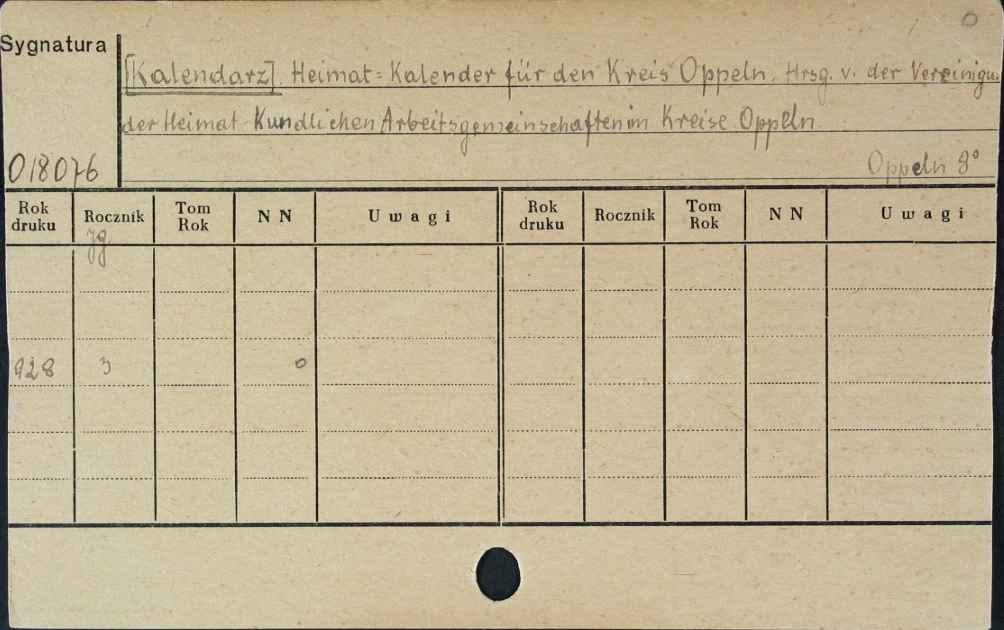 0
Sygnatura
[Kalendarz]. Heimat=Kalender für den Kreis Oppeln. Hrsg. v. der Vereinigu.
der Heimat Kundlichen Arbeitsgemeinschaften im Kreise Oppeln
018076
Oppeln 8°
Rok druku Rocznik Tom Rok N N Uwagi Rok druku Rocznik Tom Rok N N Uwagi
Jg
928 3 0